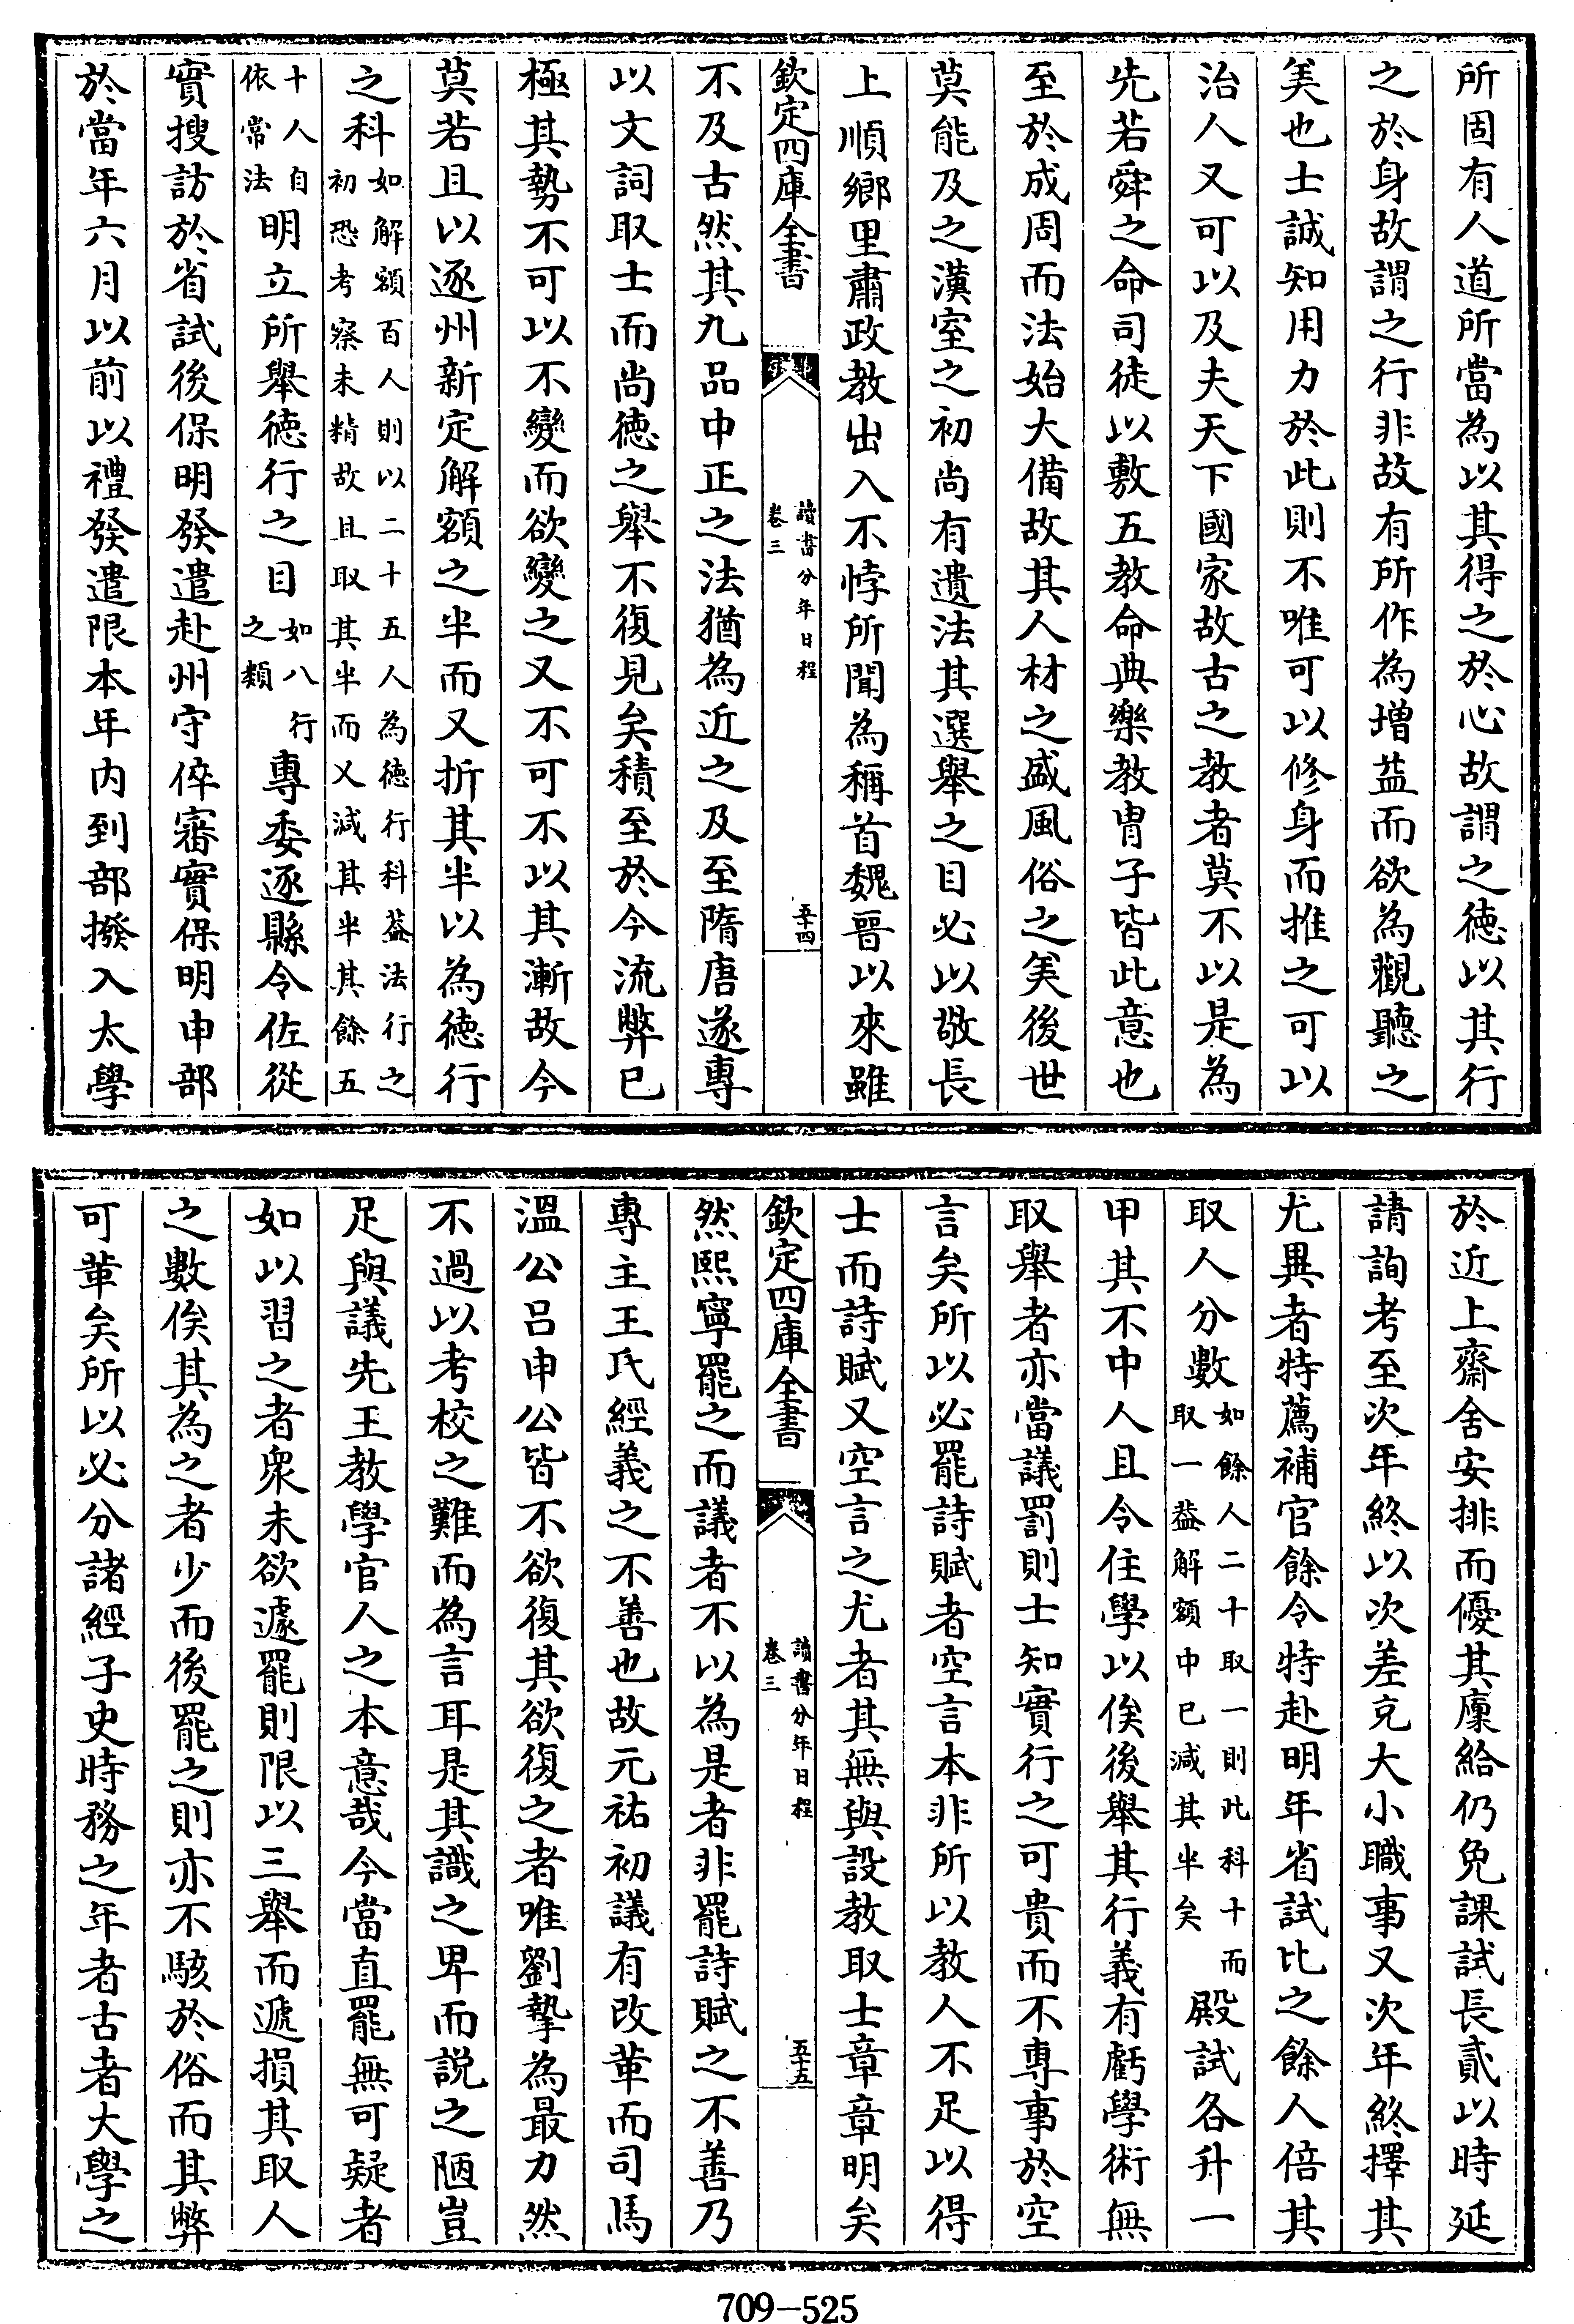 所固有人道所當為以其得之於心故謂之徳以其行
之於身故謂之行非故有所作為増益而欲為觀聽之
美也士誠知用力於此則不唯可以修身而推之可以
治人又可以及夫天下國家故古之教者莫不以是為
先若舜之命司徒以敷五教命典樂教胄子皆此意也
至於成周而法始大備故其人材之盛風俗之美後世
莫能及之漢室之初尚有遺法其選舉之目必以敬長
上順鄉里肅政教出入不悖所聞為稱首魏晉以來雖
欽定四庫全書
讀書分年日程
卷三
五十四
不及古然其九品中正之法猶為近之及至隋唐遂專
以文詞取士而尚徳之舉不復見矣積至於今流弊已
極其勢不可以不變而欲變之又不可不以其漸故今
莫若且以逐州新定解額之半而又折其半以為徳行
之科如解額百人則以二十五人為徳行科葢法行之
初恐考察未精故且取其半而又減其半其餘五
十人自
依常法明立所舉徳行之目如八行
之類專委逐縣令佐從
實搜訪於省試後保明發遣赴州守倅審實保明申部
於當年六月以前以禮發遣限本年内到部撥入太學
於近上齋舍安排而優其廩給仍免課試長貳以時延
請詢考至次年終以次差充大小職事又次年終擇其
尤異者特薦補官餘令特赴明年省試比之餘人倍其
取人分數如餘人二十取一則此科十而
取一葢解額中已減其半矣殿試各升一
甲其不中人且令住學以俟後舉其行義有虧學術無
取舉者亦當議罰則士知實行之可貴而不專事於空
言矣所以必罷詩賦者空言本非所以教人不足以得
士而詩賦又空言之尤者其無與設教取士章章明矣
欽定四庫全書
讀書分年日程
卷三
五十五
然熙寧罷之而議者不以為是者非罷詩賦之不善乃
專主王氏經義之不善也故元祐初議有改革而司馬
溫公吕申公皆不欲復其欲復之者唯劉摯為最力然
不過以考校之難而為言耳是其識之卑而説之陋豈
足與議先王教學官人之本意哉今當直罷無可疑者
如以習之者衆未欲遽罷則限以三舉而遞損其取人
之數俟其為之者少而後罷之則亦不駭於俗而其弊
可革矣所以必分諸經子史時務之年者古者大學之
709-525